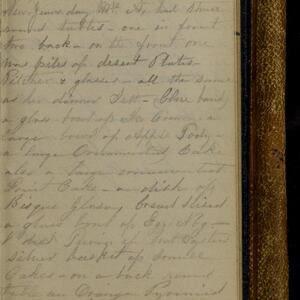 New Years day Mrs. A. had three
round tables - one in front
two back - on the front one
was piles of desert Plates
Pitcher & glasses - all the same
as her dinner Sett - Close hand
a glass bowl of Ice Cream - a
large bowl of Apple Toddy -
a large Ornamented Cake
also a large ornamented
Fruit Cake - a dish of
Bisque Glace, bread sliced
a glass bowl of Egg Nog -
Oysters
silver basket of some
Cakes - on a back round
table an Orange Pyramid